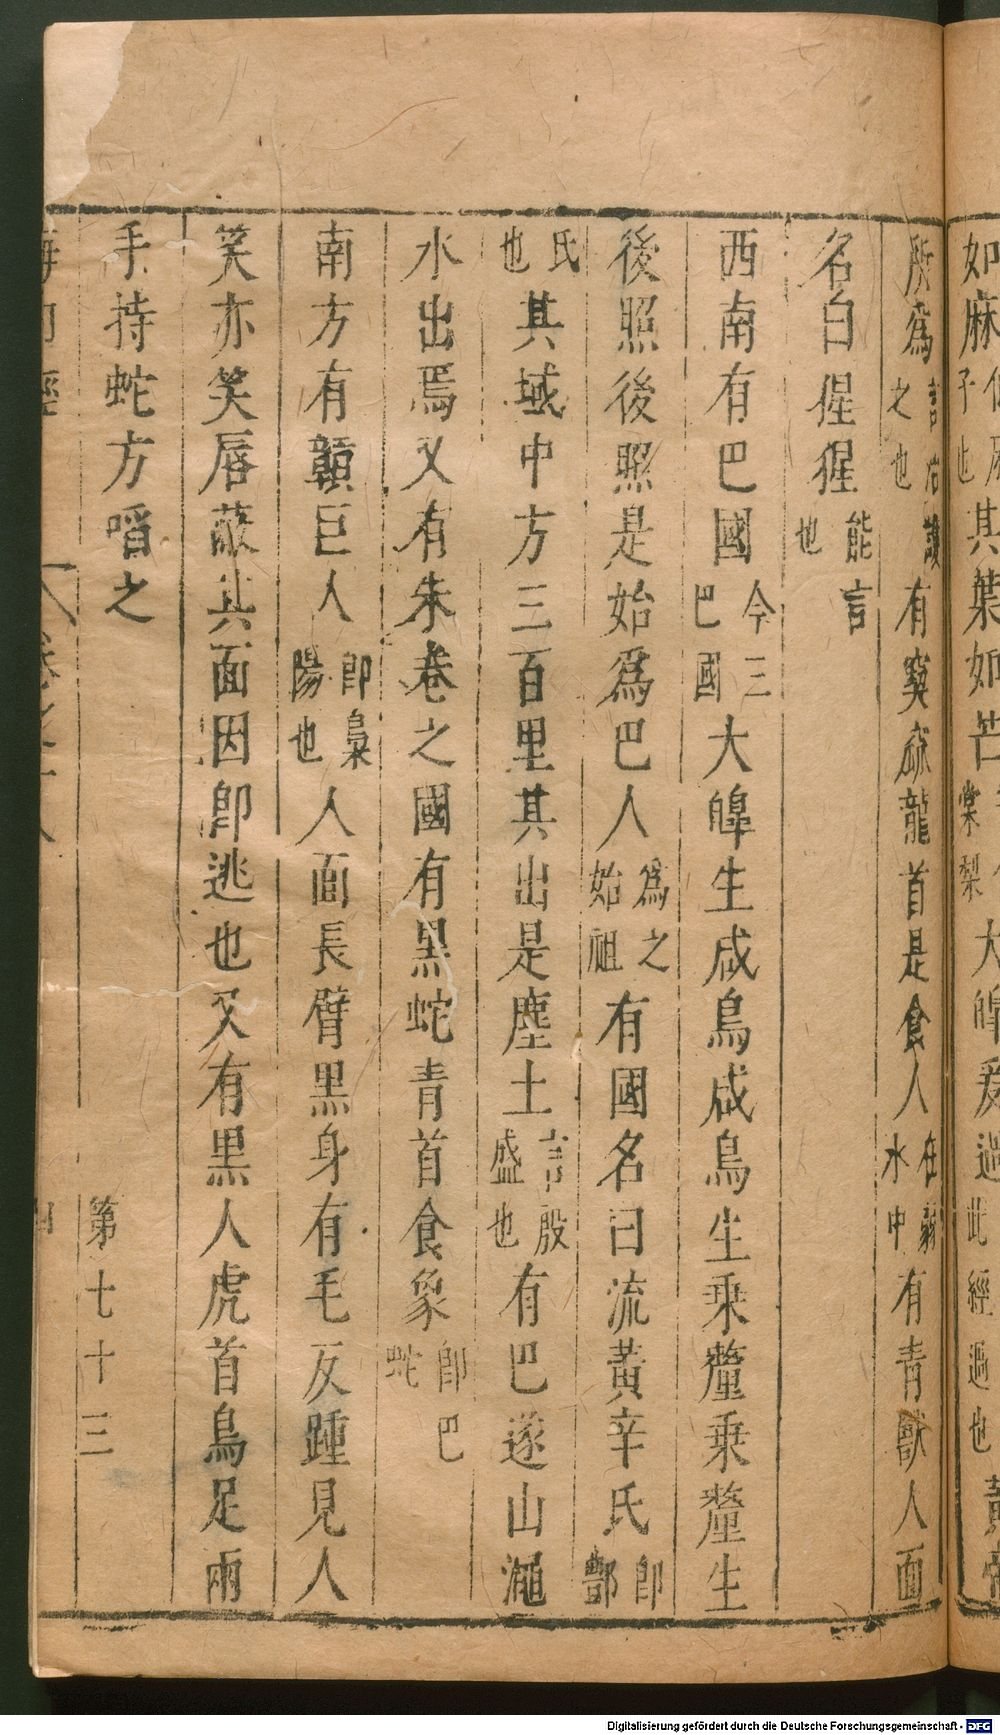 如麻子也其葉如芒大皥爰過此經過也黃帝
所爲言治護之也有窫窳龍首是食人在弱水中有青獸人面
名曰猩猩能言也
西南有巴國今三巴國大皥生咸鳥咸鳥生乗釐乗釐生
後照後照是始爲巴人爲之始祖有國名曰流黃辛氏卽酆
氏也其域中方三百里其出是塵土言殷盛也有巴遂山澠
水出焉又有朱卷之國有黑蛇青首食象卽巴蛇
南方有贛巨人卽梟陽也人面長臂黑身有毛反踵見人
笑亦笑唇蔽其面因卽逃也又有黑人虎首鳥足兩
手持蛇方啗之
第七十三
Digitalisierung gefördert durch die Deutsche Forschungsgemeinschaft - DFG